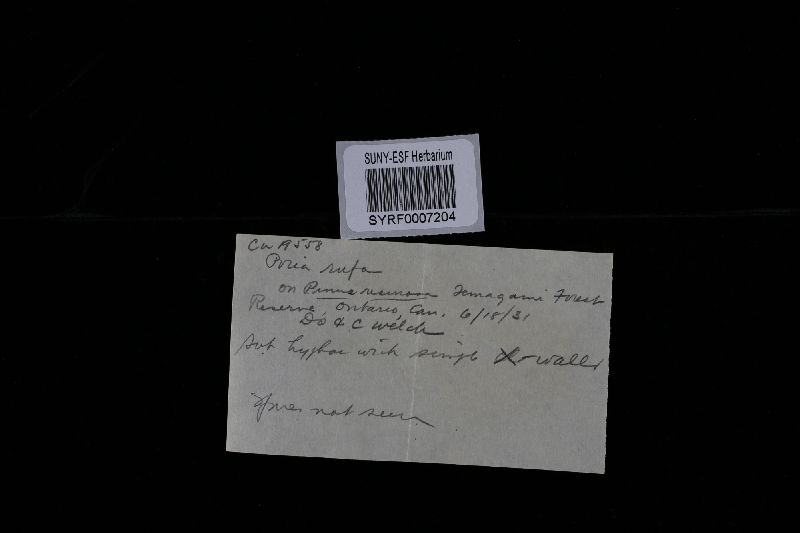 SUNY-ESF Herbarium
SYRF0007204
Ca 19558
Poria rufa
on Pinus resinosa Temagami Forest
Reserve, Ontario, Can. 6/18/31
Do & C Welch
Sub. hyphae with single X-walls
Spores not seen